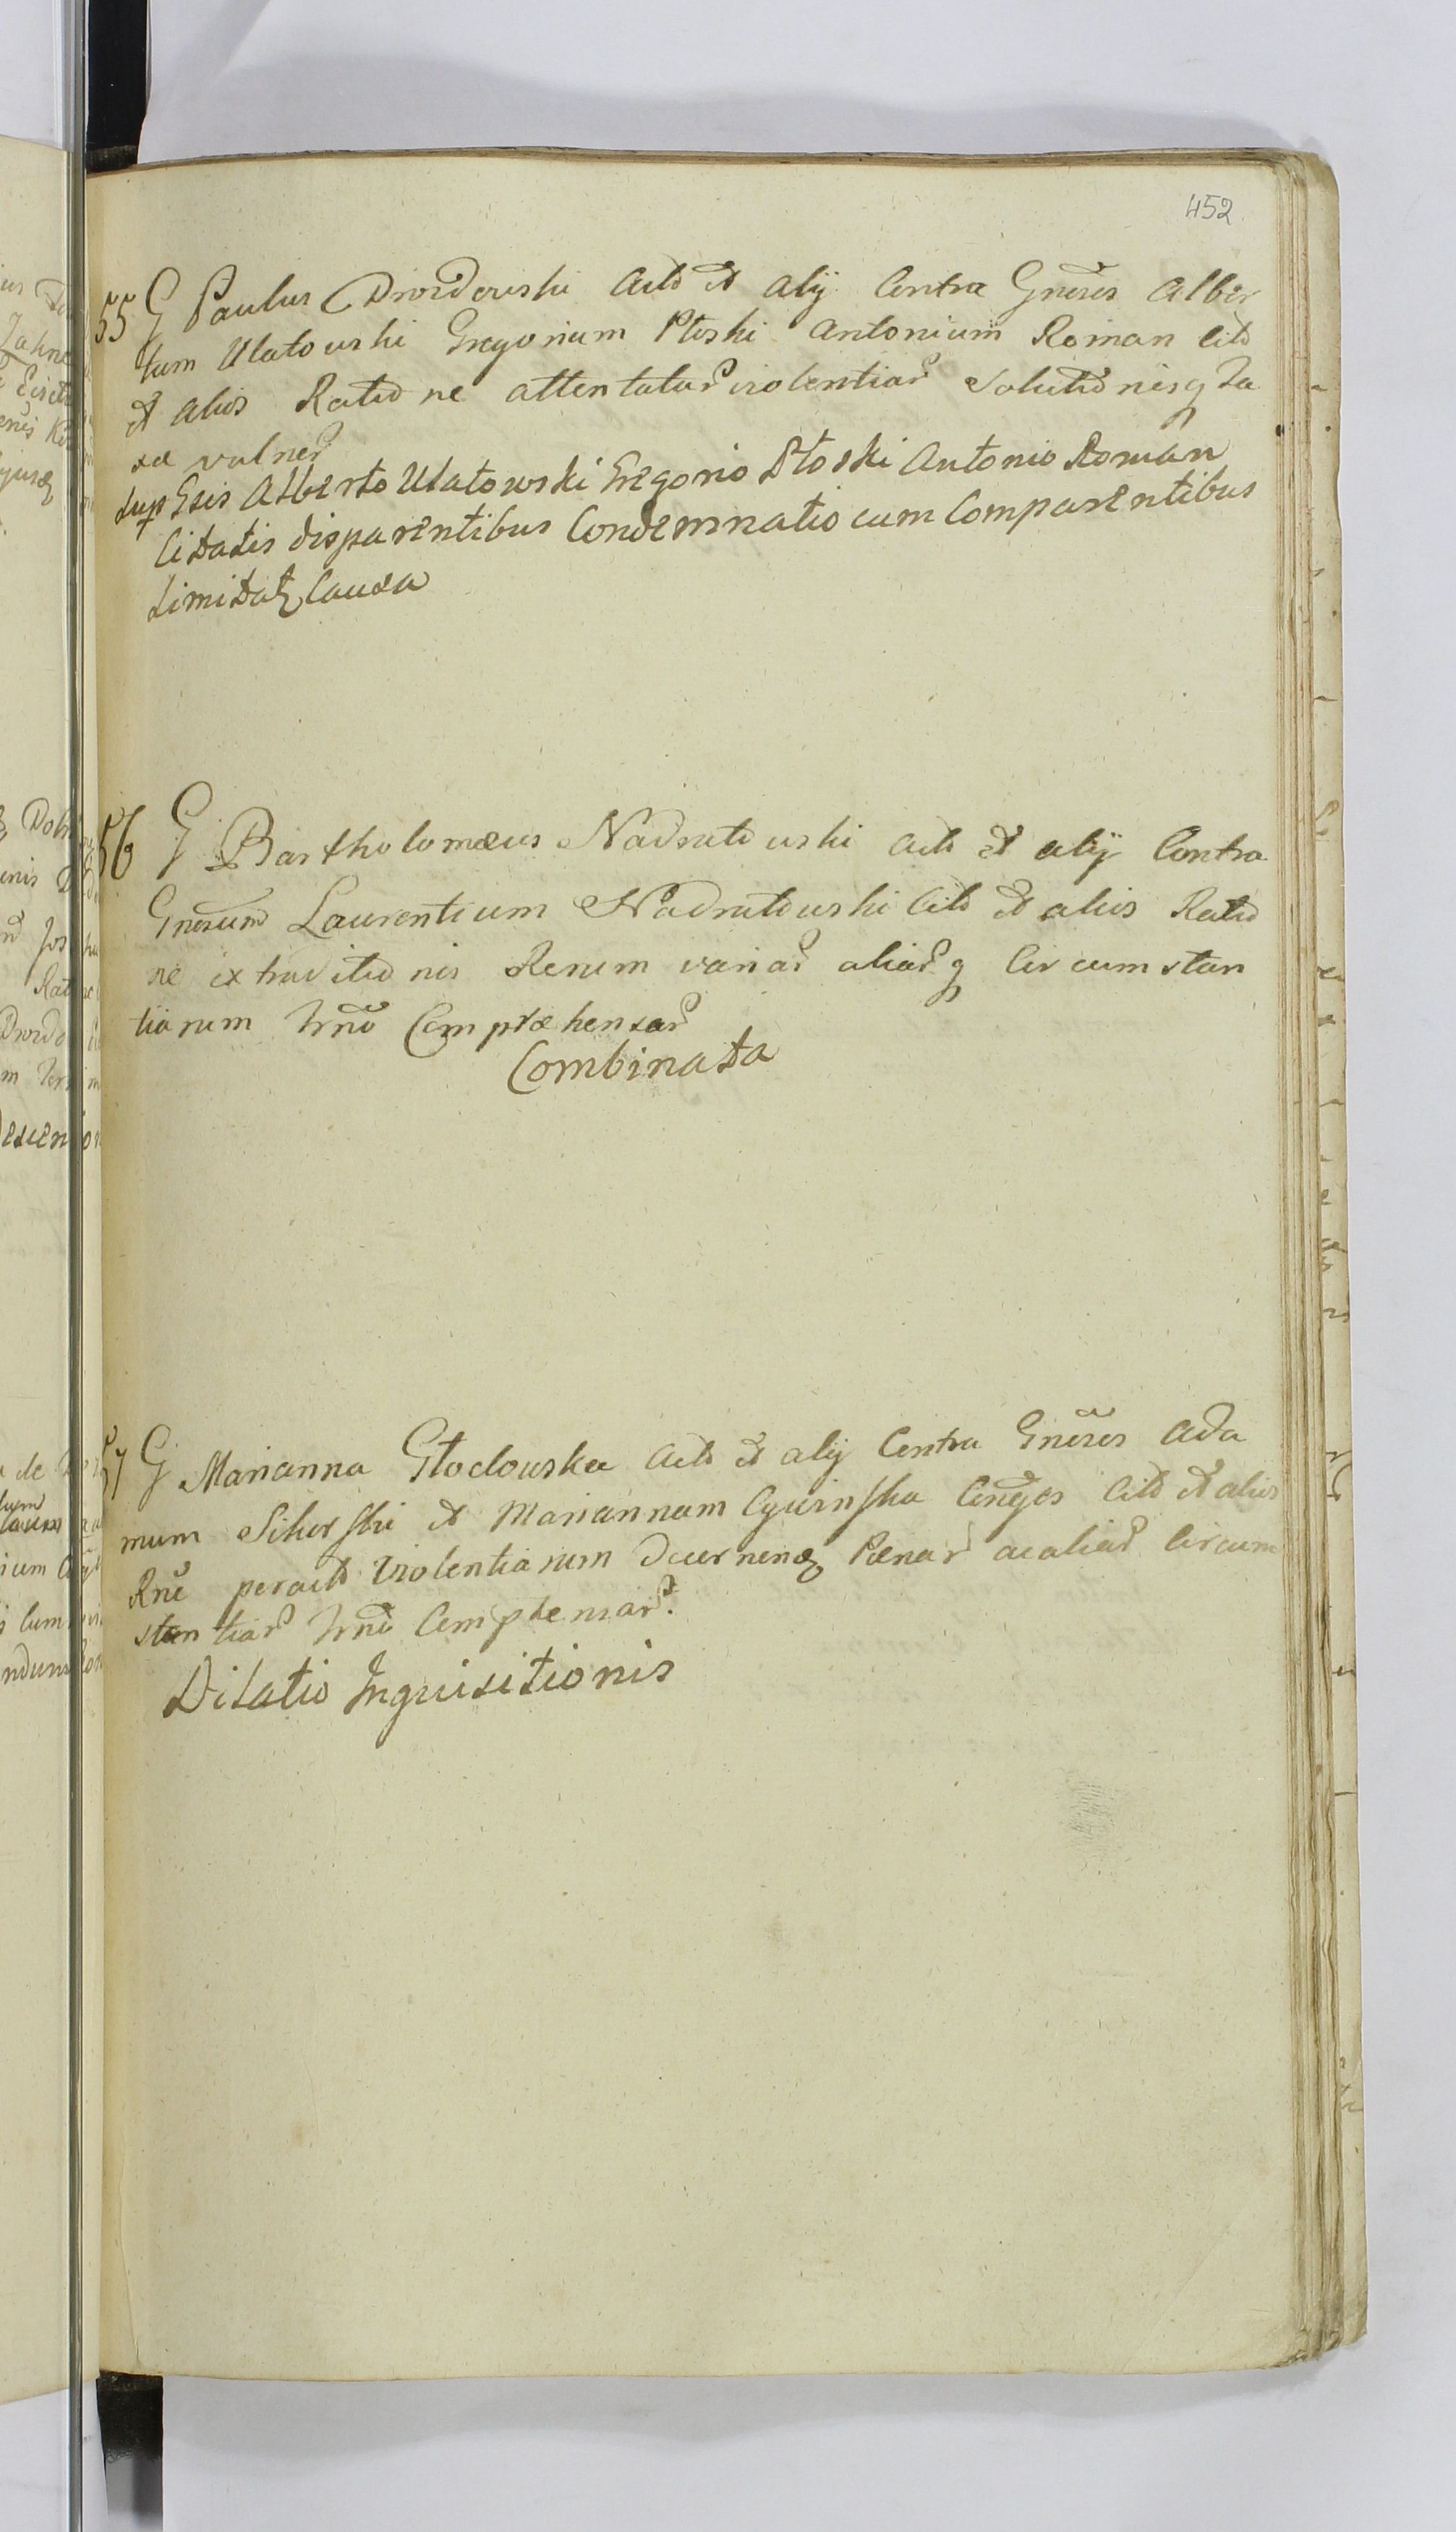 452
55 G Paulus Drozdowski Act et alij Contra Gneros Alber
tum Ulatowski Gregorium Ptoski Antonium Roman Cit
et alios Ratio ne attentatar violentiar Solutionisq Ta
xæ vulner
Sup Gsis Alberto Ulatowski Gregorio Ptoski Antonio Roman
Citatis disparentibus Condemnatio cum Comparentibus
Limitatq Causa
56 G Bartholomæus Nadratowski Act et alij Contra
Gnerum Laurentium Nadratowski Cit et alios Ratio
ne extraditio nis Rerum variar aliarq Circumstan
tiarum Trno Compræhensar
Combinata
57 G Marianna Głodowska Act et alij Contra Gneros Ada
mum Sikorski et Mariannam Cywinska Cnges Cit et alios
Rne peract Violentiarum decernenq Pænar acaliar Circum
stantiar Trno Complensar.
Dilatio Inquisitionis